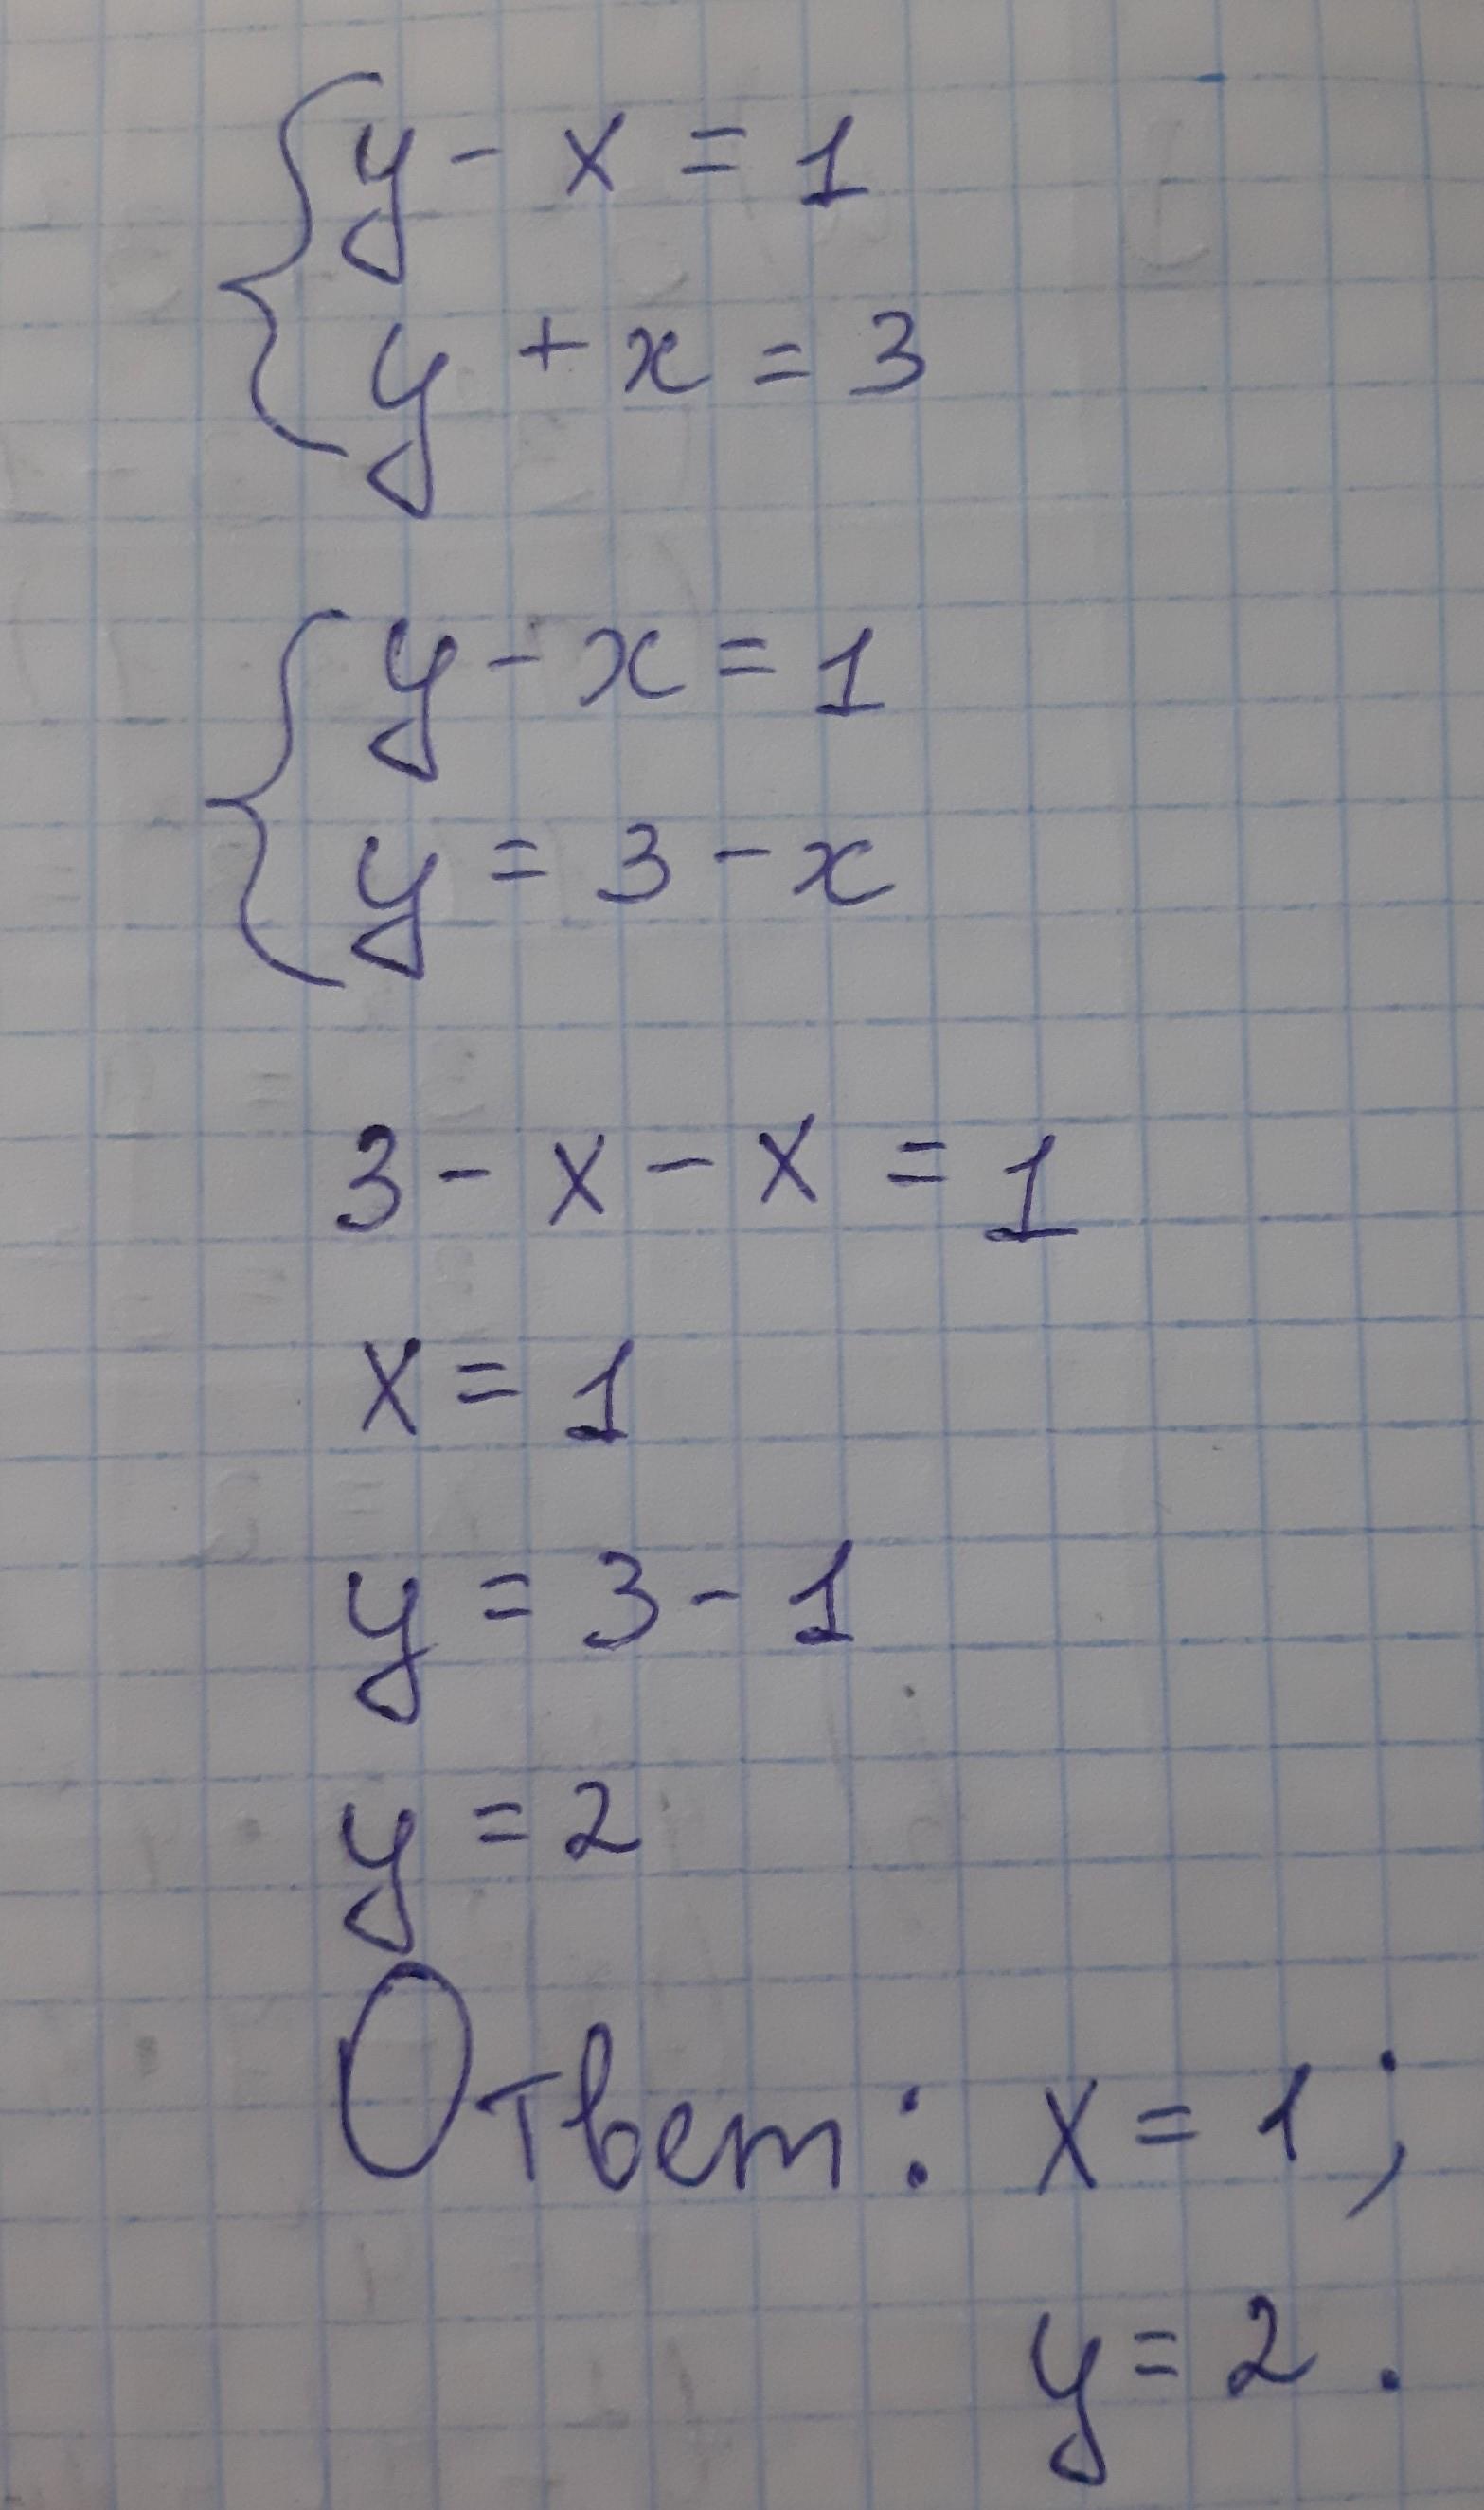 y - x = 1
y + x = 3
y - x = 1
y = 3 - x
3 - x - x = 1
x = 1
y = 3 - 1
y = 2
Ответ: x = 1;
y = 2.